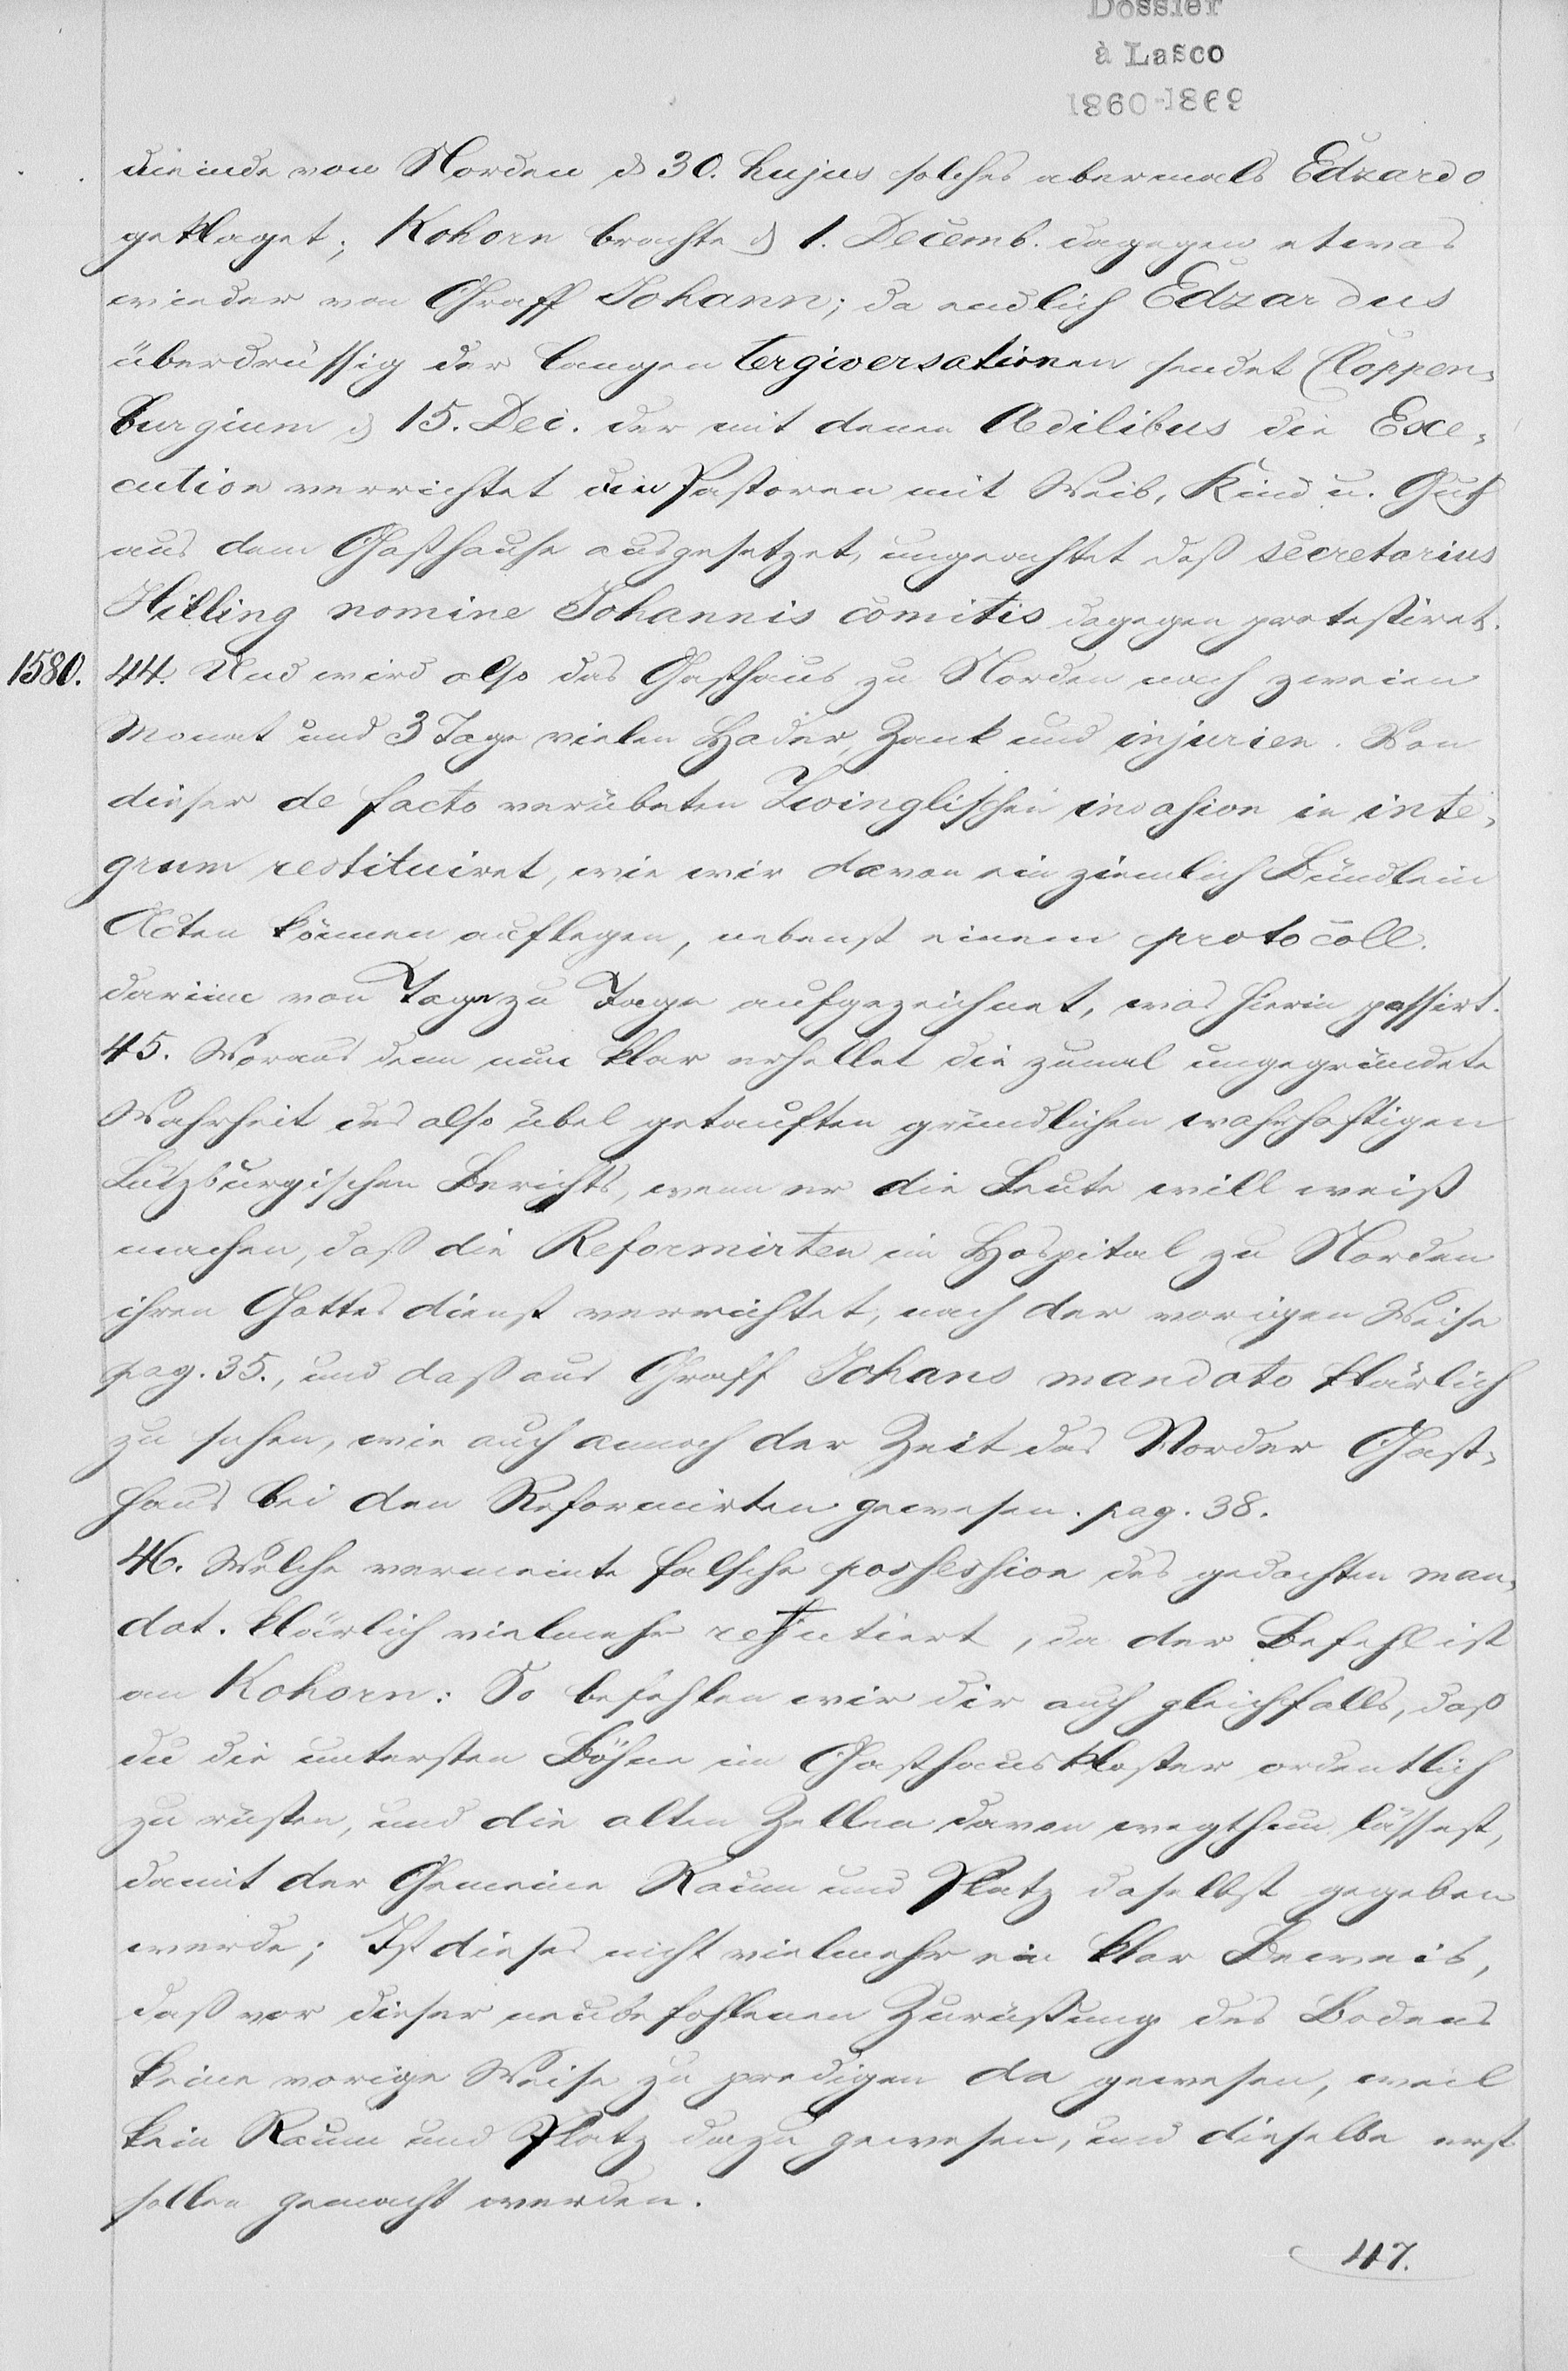 Dossier
à Lasco
1860-1869
meinde von Norden d 30. hujus solches abermals Edzardo
geklaget; Kohorn brachte d 1. Decemb. dagegen etwas
wieder von Graff Johann; da endlich Edzardus
überdrüssig der langen tergiversationen sendet Cloppen-
burgium d 15. Dec. der mit denen Aedilibus die Exe-
cution verrichtet die Pastoren mit Weib, Kind u. Guth
aus dem Gasthause ausgesetzet, ungeachtet daß secretarius
Hilling nomine Johannis comitis dagegen protestiret.
1580. 44. Und wird also das Gasthaus zu Norden nach zweien
Monat und 3 Tage vielen Hader, Zank und injurien. Von
dieser de facto verübeten Zwinglischen invasion in inte-
grum restituiret, wie wir davon ein ziemlich Bündlein
Acten können auflegen, nebenst einem protocoll.
darinne von Tage zu Tage aufgezeichnet, was hierin passirt.
45. Woraus denn nun klar erhellet die zumal ungegründete
Wahrheit des also übel getauften gründlichen wahrhaftigen
Lützburgischen Berichts, wenn er die Leute will weiß
machen, daß die Reformirten im Hospital zu Norden
ihren Gottesdienst verrichtet, nach der vorigen Weise
pag. 35., und daß aus Graff Johans mandato klärlich
zu sehen, wie auch annoch der Zeit das Norder Gast-
haus bei den Reformirten gewesen. pag. 38.
46. Welche vermeinte falsche possession das gedachten man-
dat. klärlich vielmehr refutiert, da der Befehl ist
an Kohorn: So befehlen wir dir auch gleichfalls, daß
du die untersten Böhne im Gasthauskloster ordentlich
zu rüsten, und die alten Zellen davon wegthun lässest,
damit der Gemeine Raum und Platz daselbst gegeben
werde; Ist dieses nicht vielmehr ein klar Beweis,
daß vor dieser neubefohlenen Zurüstung des Bodens
keine vorige Weise zu predigen da gewesen, weil
kein Raum und Platz dazu gewesen, und dieselbe erst
sollen gemacht werden.
47.